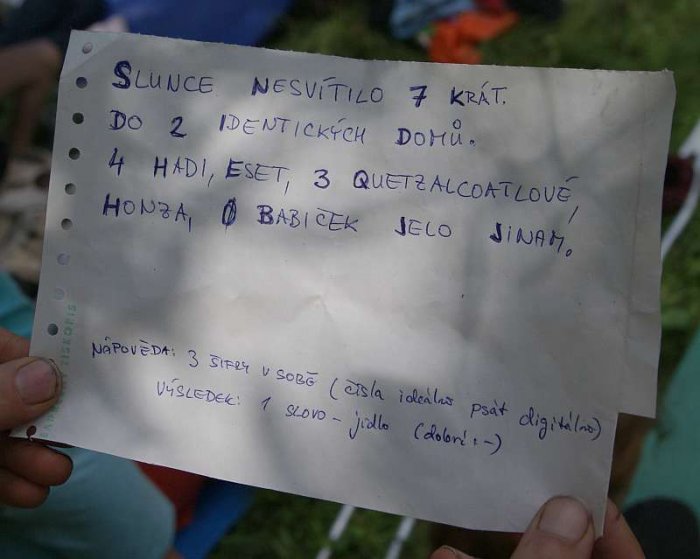 SLUNCE NESVÍTILO 7 KRÁT.
DO 2 IDENTICKÝCH DOMŮ.
4 HADI, ESET, 3 QUETZALCOATLOVÉ,
HONZA, 0 BABIČEK JELO JINAM.
NÁPOVĚDA: 3 ŠIFRY V SOBĚ (čísla ideálně psát digitálně)
VÝSLEDEK: 1 SLOVO - jídlo (dobré :-)